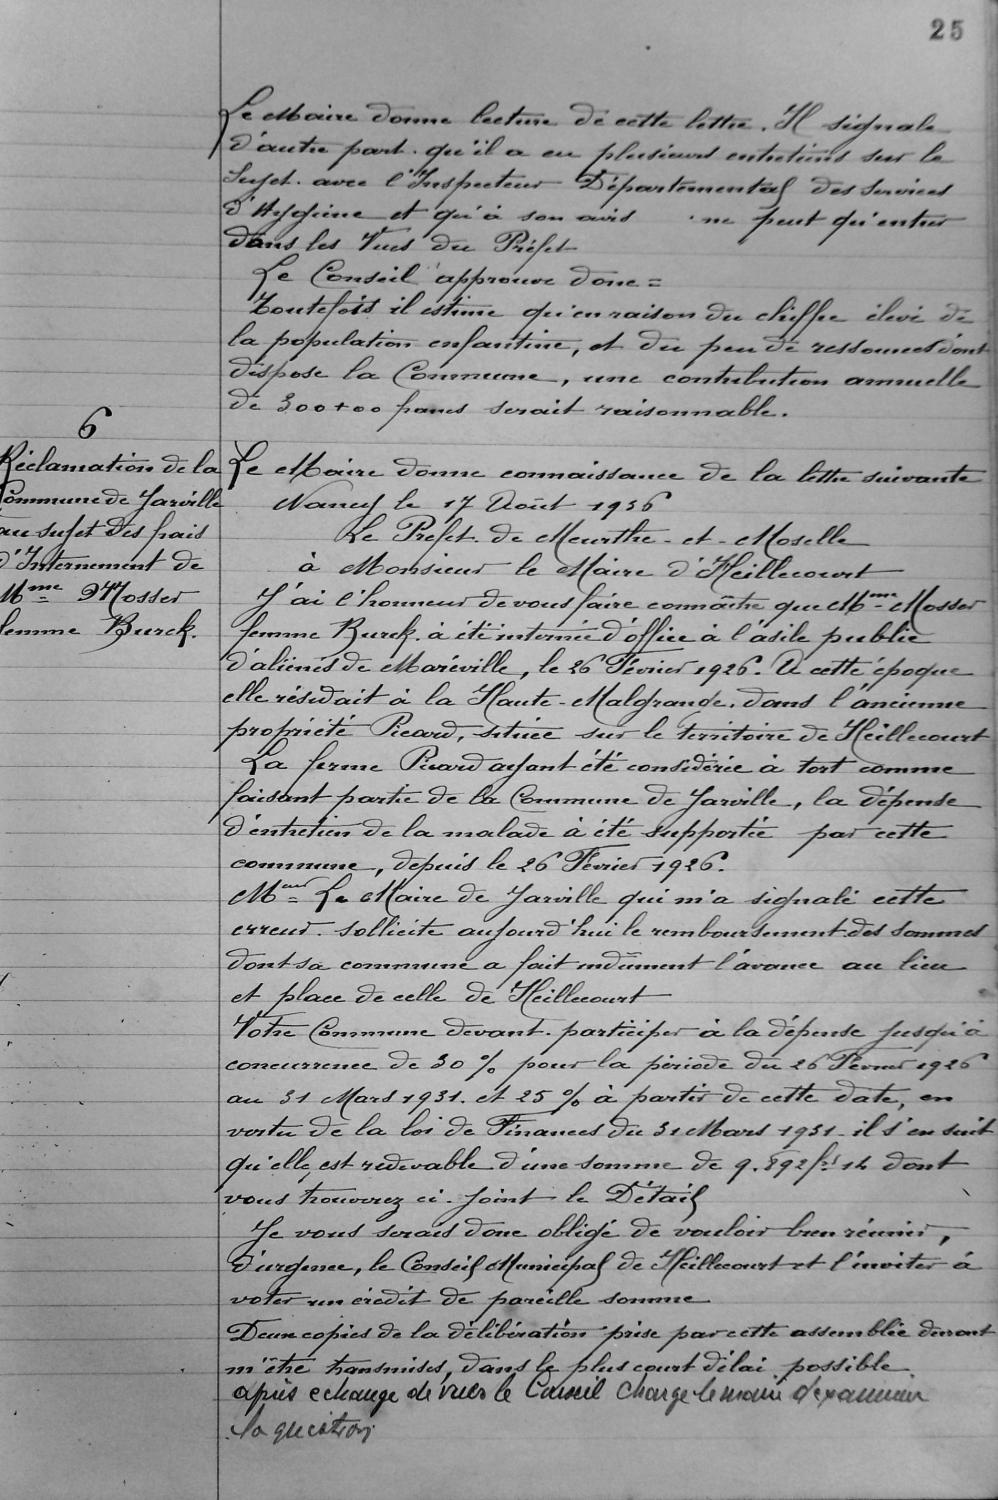 25
Le Maire donne lecture de cette lettre. Il signale
d'autre part. qu'il a eu plusieurs entretiens sur le
sujet. avec l'Inspecteur Départemental des Services
d'Hygiène et qu'à son avis ne peut qu'entrer
dans les Vues du Préfet
Le Conseil approuve donc =
Toutefois il estime qu'en raison du chiffre élevé de
la population enfantine, et du peu de ressources dont
dispose la Commune, une contribution annuelle
de 300+00 francs serait raisonnable.
6
Réclamation de la
Commune de Jarville
au sujet des frais
d'Internement de
Mme Mosser
femme Burck.
Le Maire donne connaissance de la lettre suivante
Nancy le 17 Août 1936
Le Préfet. de Meurthe-et-Moselle
à Monsieur le Maire d'Heillecourt
J'ai l'honneur de vous faire connaître que Mme Mosser
femme Burck. à été internée d'office à l'asile public
d'aliénés de Maréville, le 26 Février 1926. A cette époque
elle résidait à la Haute-Malgrange, dans l'ancienne
propriété Picard, située sur le territoire de Heillecourt
La ferme Picard ayant été considérée à tort comme
faisant partie de la Commune de Jarville, la dépense
d'entretien de la malade à été supportée par cette
commune, depuis le 26 Février 1926.
Mr Le Maire de Jarville qui m'a signalé cette
erreur. sollicite aujourd'hui le remboursement des sommes
dont sa commune a fait indûment l'avance au lieu
et place de celle de Heillecourt
Votre Commune devant. participer à la dépense jusqu'à
concurrence de 30 % pour la période du 26 Février 1926
au 31 Mars 1931. et 25 % à partir de cette date, en
vertu de la loi de Finances du 31 Mars 1931 il s'en suit
qu'elle est redevable d'une somme de 9.892frs14 dont
vous trouverez ci-joint le Détail
Je vous serais donc obligé de vouloir bien réunir,
d'urgence, le Conseil Municipal de Heillecourt et l'inviter à
voter un crédit de pareille somme
Deux copies de la délibération prise par cette assemblée devront
m'être transmises, dans le plus court délai possible
après echange de vues le Conseil charge le maire d'examiner
la question